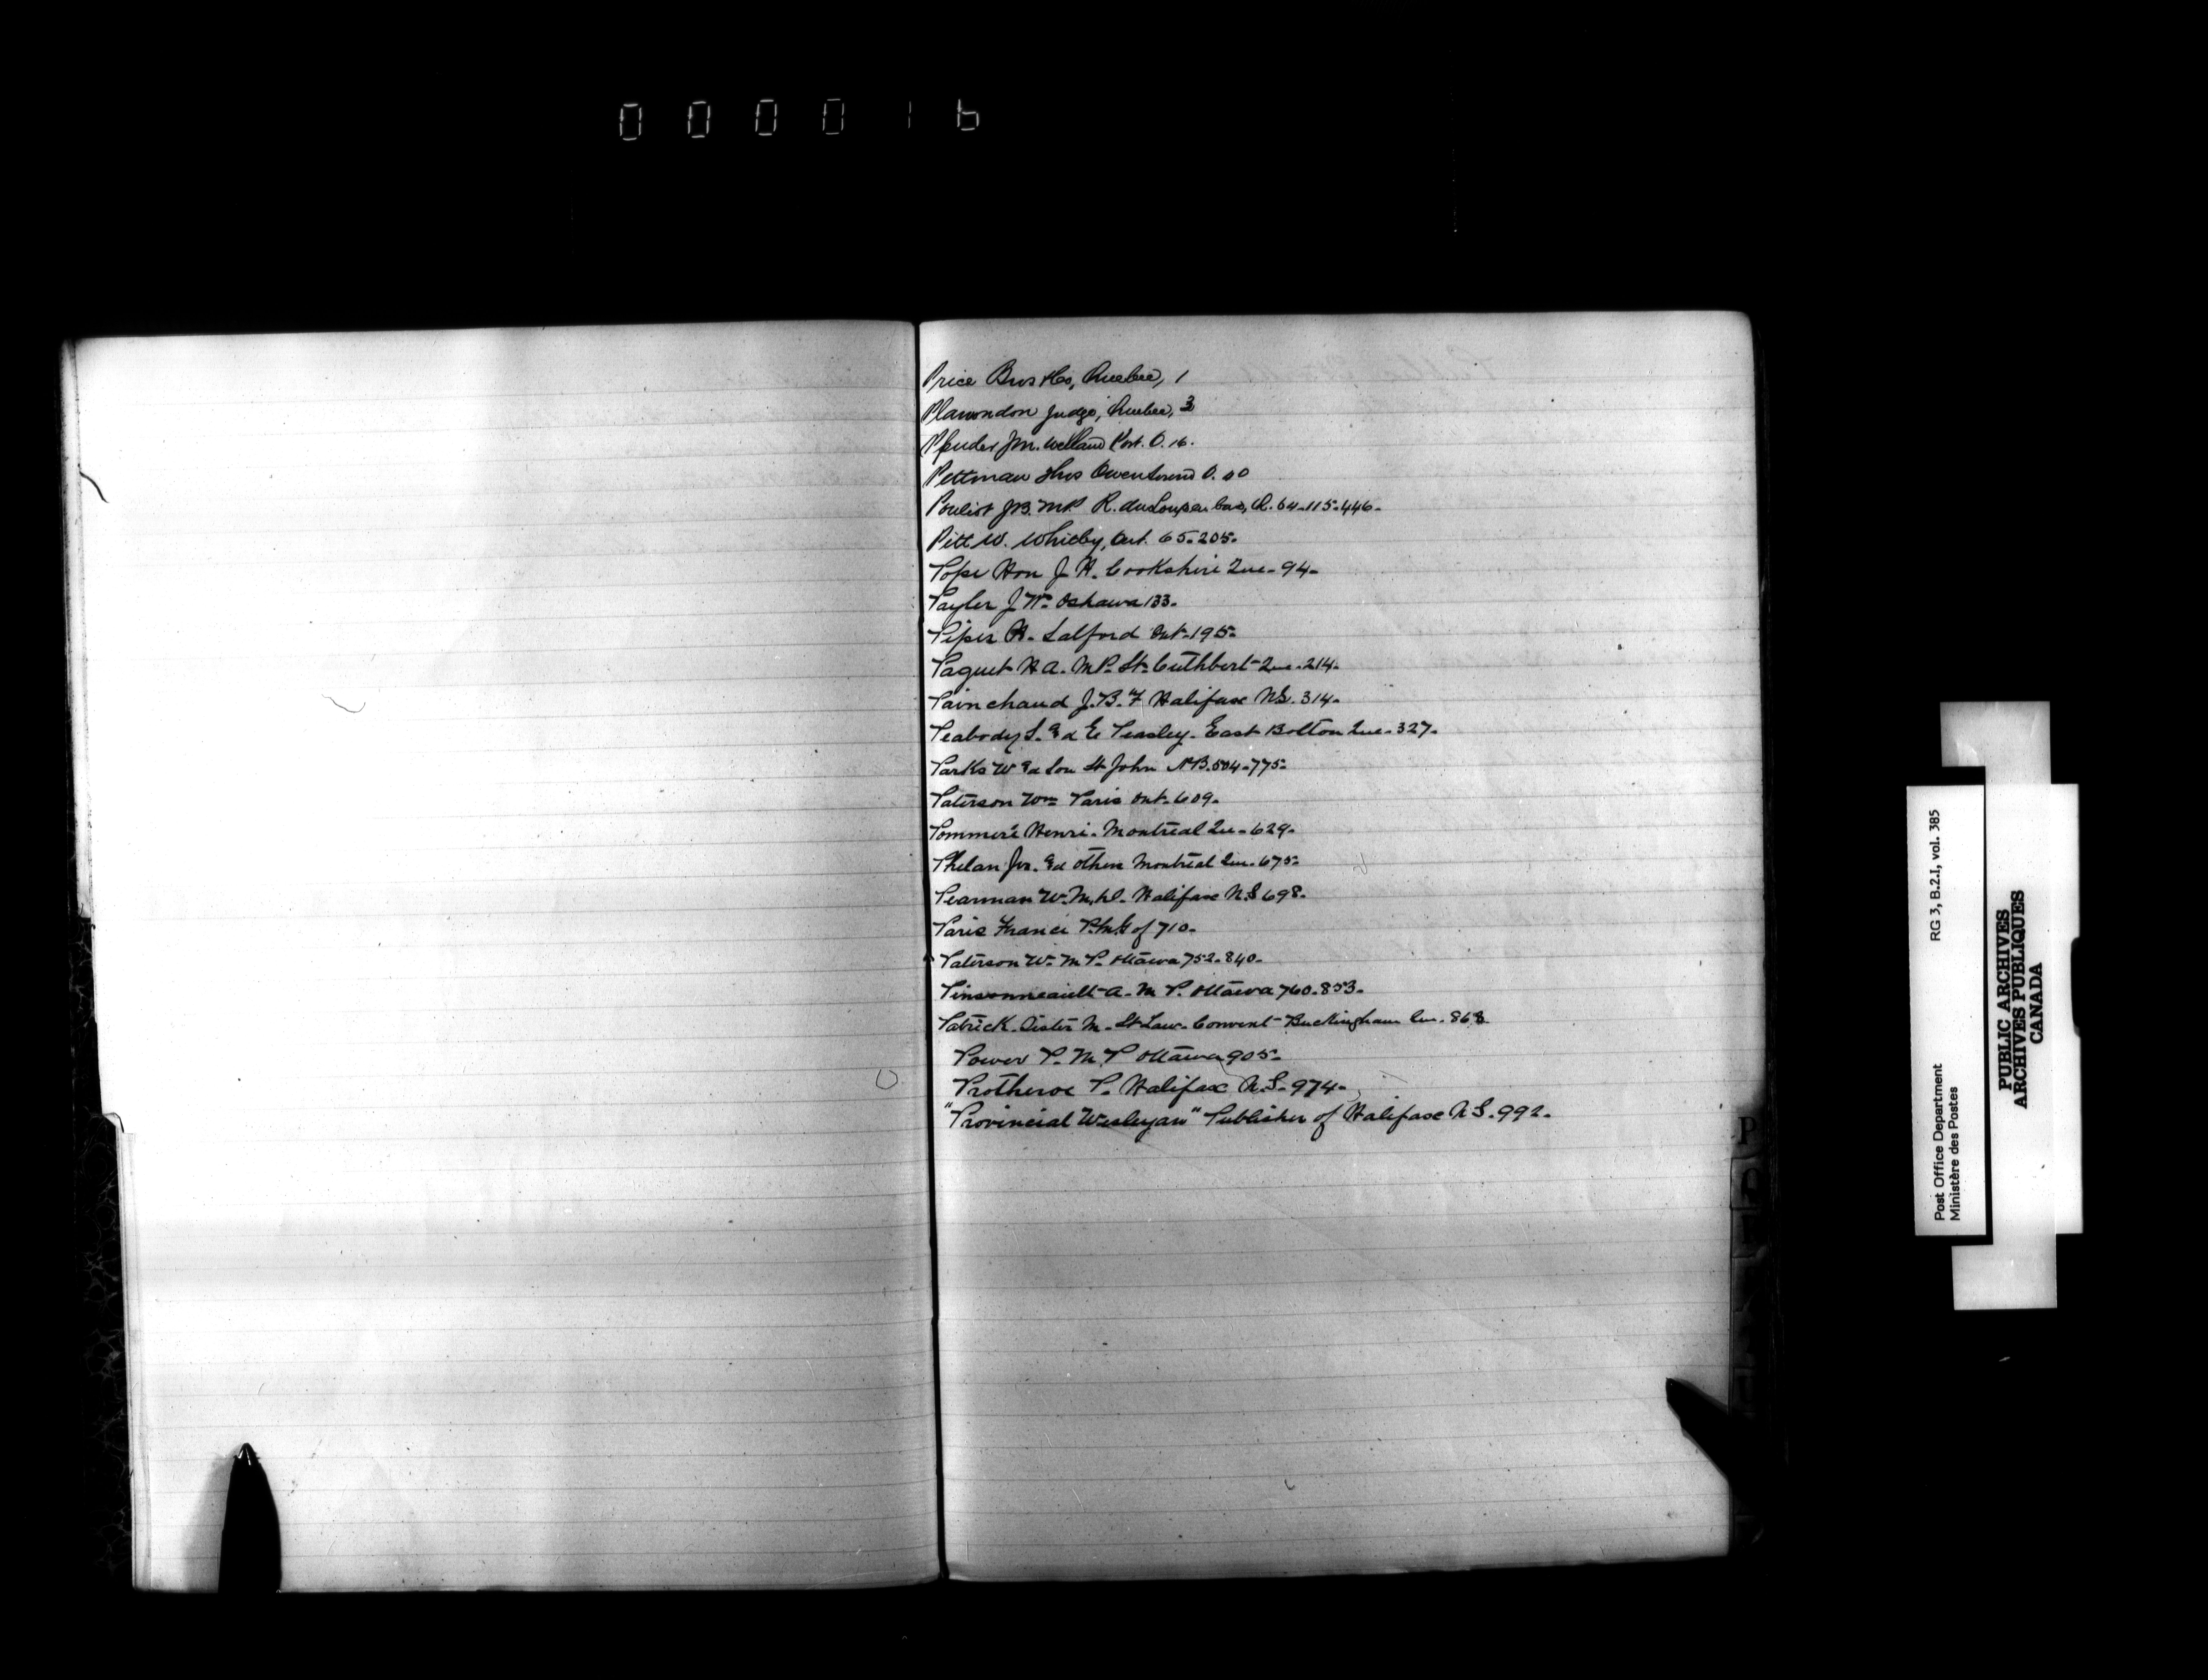 000016
Price Bros & Co, Quebec, 1
Plamondon Judge, Quebec, 3
Pfuder Jm. Welland Port. O. 16.
Pettman Thos Owen Sound O.
Pouliot J.B. M.P. R. du Loup en bas, Q. 64-115-446-
Pitt W. Whitby, Ont. 65-205-
Pope Hon J H. Cookshire Que- 94-
Payler J Wm Oshawa 133-
Piper H- Salford Ont-195-
Paquet H A- MP- St- Cuthbert- Que- 214-
Painchaud J.B.F Halifax NS. 314-
Peabody S. & E Peasley- East Bolton Que- 327-
Parks W & Son St John N B. 504-775-
Paterson Wm Paris Ont- 609-
Pommeré Henri- Montreal Qu- 629-
Phelan Jno. & others Montreal Que- 675-
Pearman W- M, Halifax N.S 698-
Paris France P.M.G of 710-
Paterson Wm M P- Ottawa 752-840-
Pinsonneault- A- M P. Ottawa 760-853-
Patrick- Sister M- St Law- Convent- Buckingham Qu- 868
Power P- M. P Ottawa 905-
Protheroe P- Halifax N.S- 974-
"Provincial Wesleyan" Publisher of Halifax N S- 992-
P
Post Office Department
Ministère des Postes
RG 3, B.2.I, vol. 385
PUBLIC ARCHIVES
ARCHIVES PUBLIQUES
CANADA